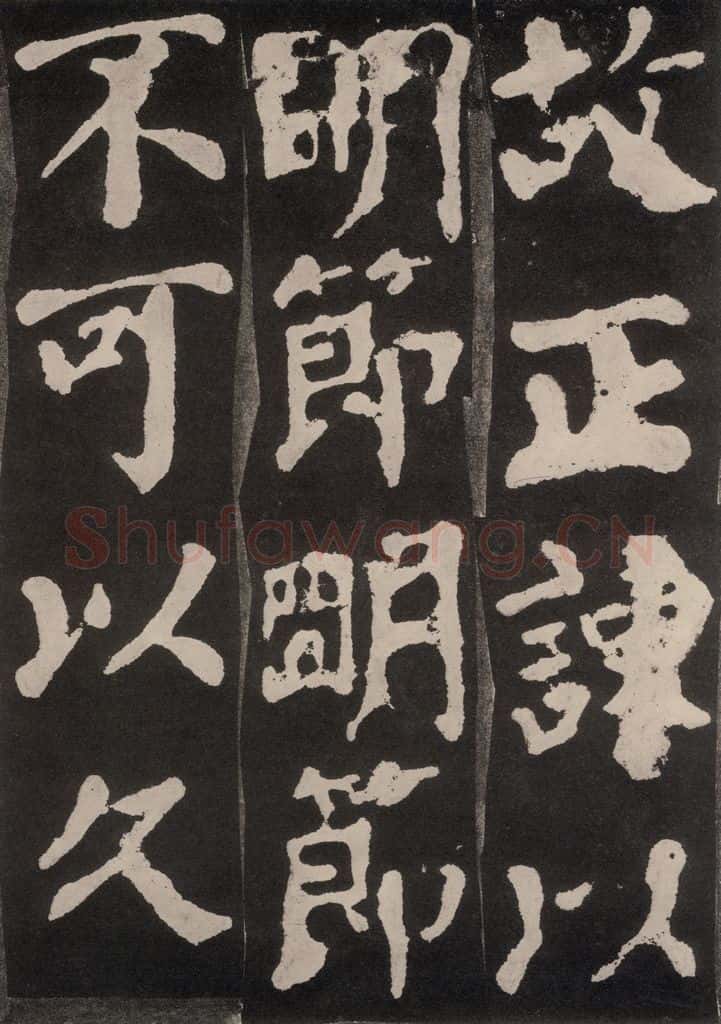 故正諫以
明節明節
不可以久
Shufawang.CN